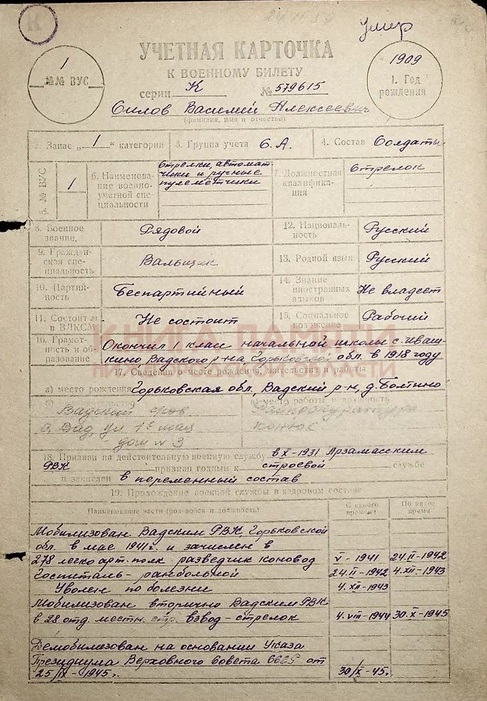 К
24.11.54
умер
1
№№ ВУС
УЧЕТНАЯ КАРТОЧКА
К ВОЕННОМУ БИЛЕТУ
серии К № 579615
1909
1. Год рождения
Силов Василий Алексеевич
(фамилия, имя и отчество)
2. Запас „1" категории
3. Группа учета С.А.
4. Состав Солдаты
5. № ВУС
1
6. Наименование военно-учетной специальности
стрелки, автоматчики и ручные пулеметчики
7. Должностная квалификация
стрелок
8. Военное звание
Рядовой
12. Национальность
Русский
9. Гражданская специальность
Вальщик
13. Родной язык
Русский
10. Партийность
Беспартийный
14. Знание иностранных языков
Не владеет
11. Состоит ли в ВЛКСМ
Не состоит
15. Социальное
Рабочий
КНИГА ПАМЯТИ
НИЖЕГОРОДСКОЙ ОБЛАСТИ
16. Грамотность и образование
Окончил 1 класс начальной школы с Ивашкино Вадского р-на Горьковской обл. в 1918 году
17. Сведения о месте рождения, жительства и работы
а) место рождения Горьковская обл. Вадский р-н, д.
Вадский
с. Вад, ул 1е мая
дом № 3
Райпрокуратура
конюх
18. Призван на действительную военную службу в X-1931 Арзамасским
РВК признан годным к строевой службе
и зачислен в переменный состав
19. Прохождение военной службы в кадровом составе
Наименование части (род войск) и должность
С какого времени
По какое время
Мобилизован Вадским РВК Горьковской
обл. в мае 1941 г. и зачислен в
278 легко арт. полк разведчик коновод
V-1941 24.II-1942
Госпиталь - ранбольной
24.II-1942 4.XII-1943
Уволен по болезни
4.XII-1943
Мобилизован вторично Вадским РВК
в 28 отд. местн. стр. взвод - стрелок
4.VIII-1944 30.X-1945
Демобилизован на основании Указа
Президиума Верховного совета от
25/IX-1945г.
30/X-45г.